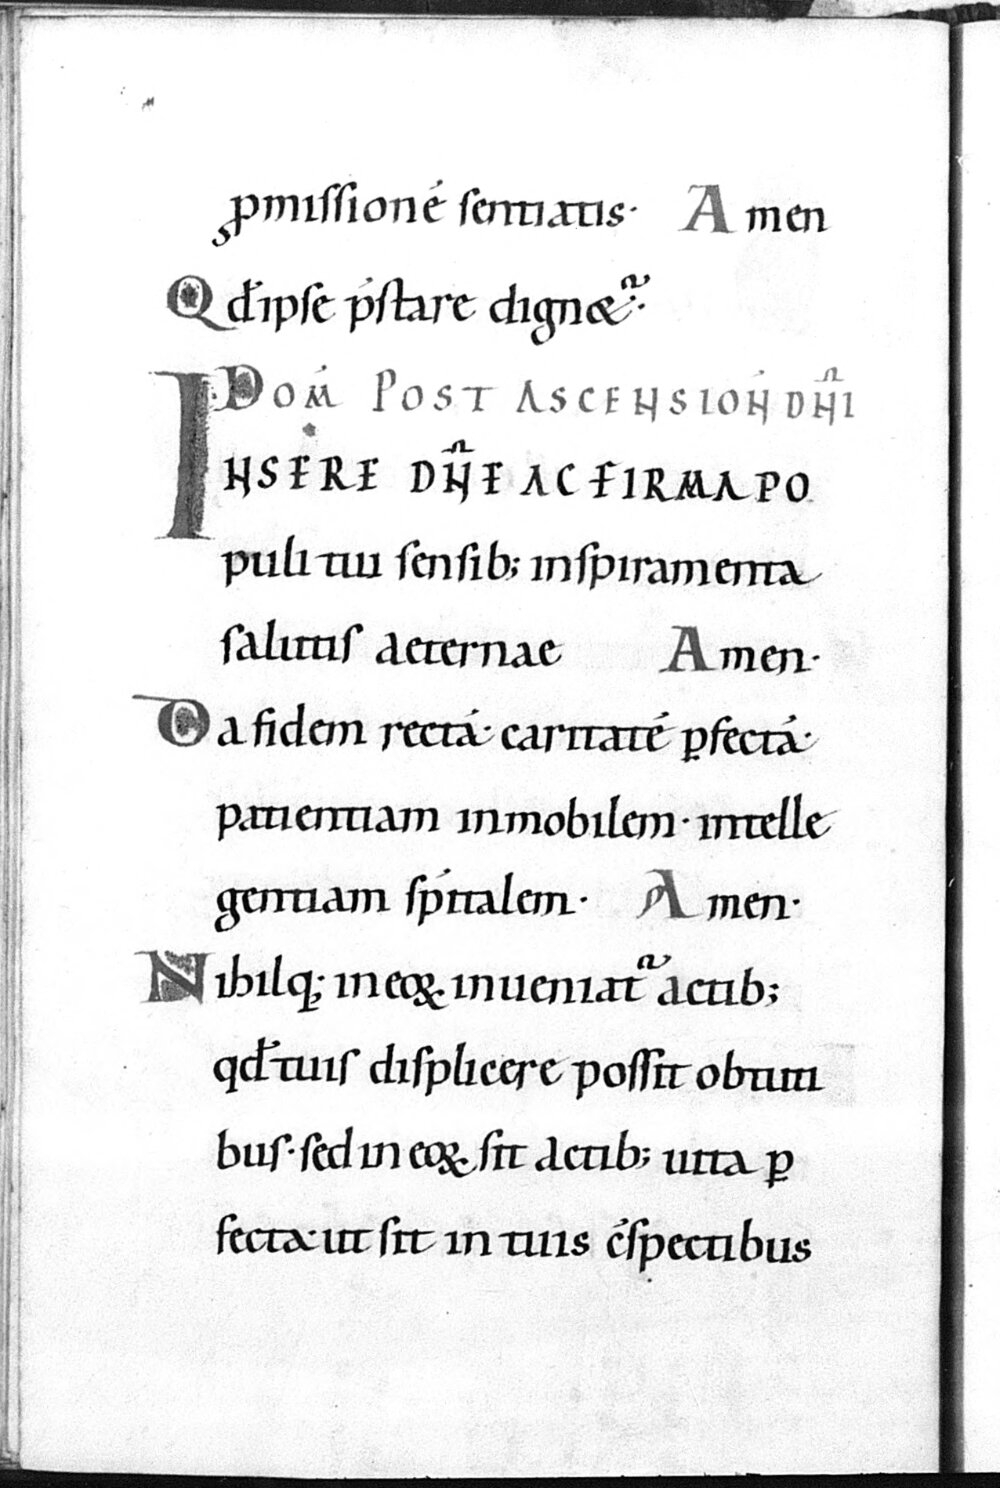 ꝓmissionē sentiatis· Amen
Qđ ipse p̄stare dignet̃·
Dom̄ Post Ascension̄ Dn̄i
INSERE DN̄E AC FIRMA PO
puli tui sensib; inspiramenta
salutis aeternae Amen·
Da fidem rectā· caritatē ꝑfectā·
patientiam inmobilem· intelle
gentiam sp̄italem· Amen·
Nihilq; in eoꝝ inueniat̃ actib;
qđ tuis displicere possit obtuti
bus· sed in eoꝝ sit actib; uita ꝑ
fecta· ut sit in tuis c̄spectibus